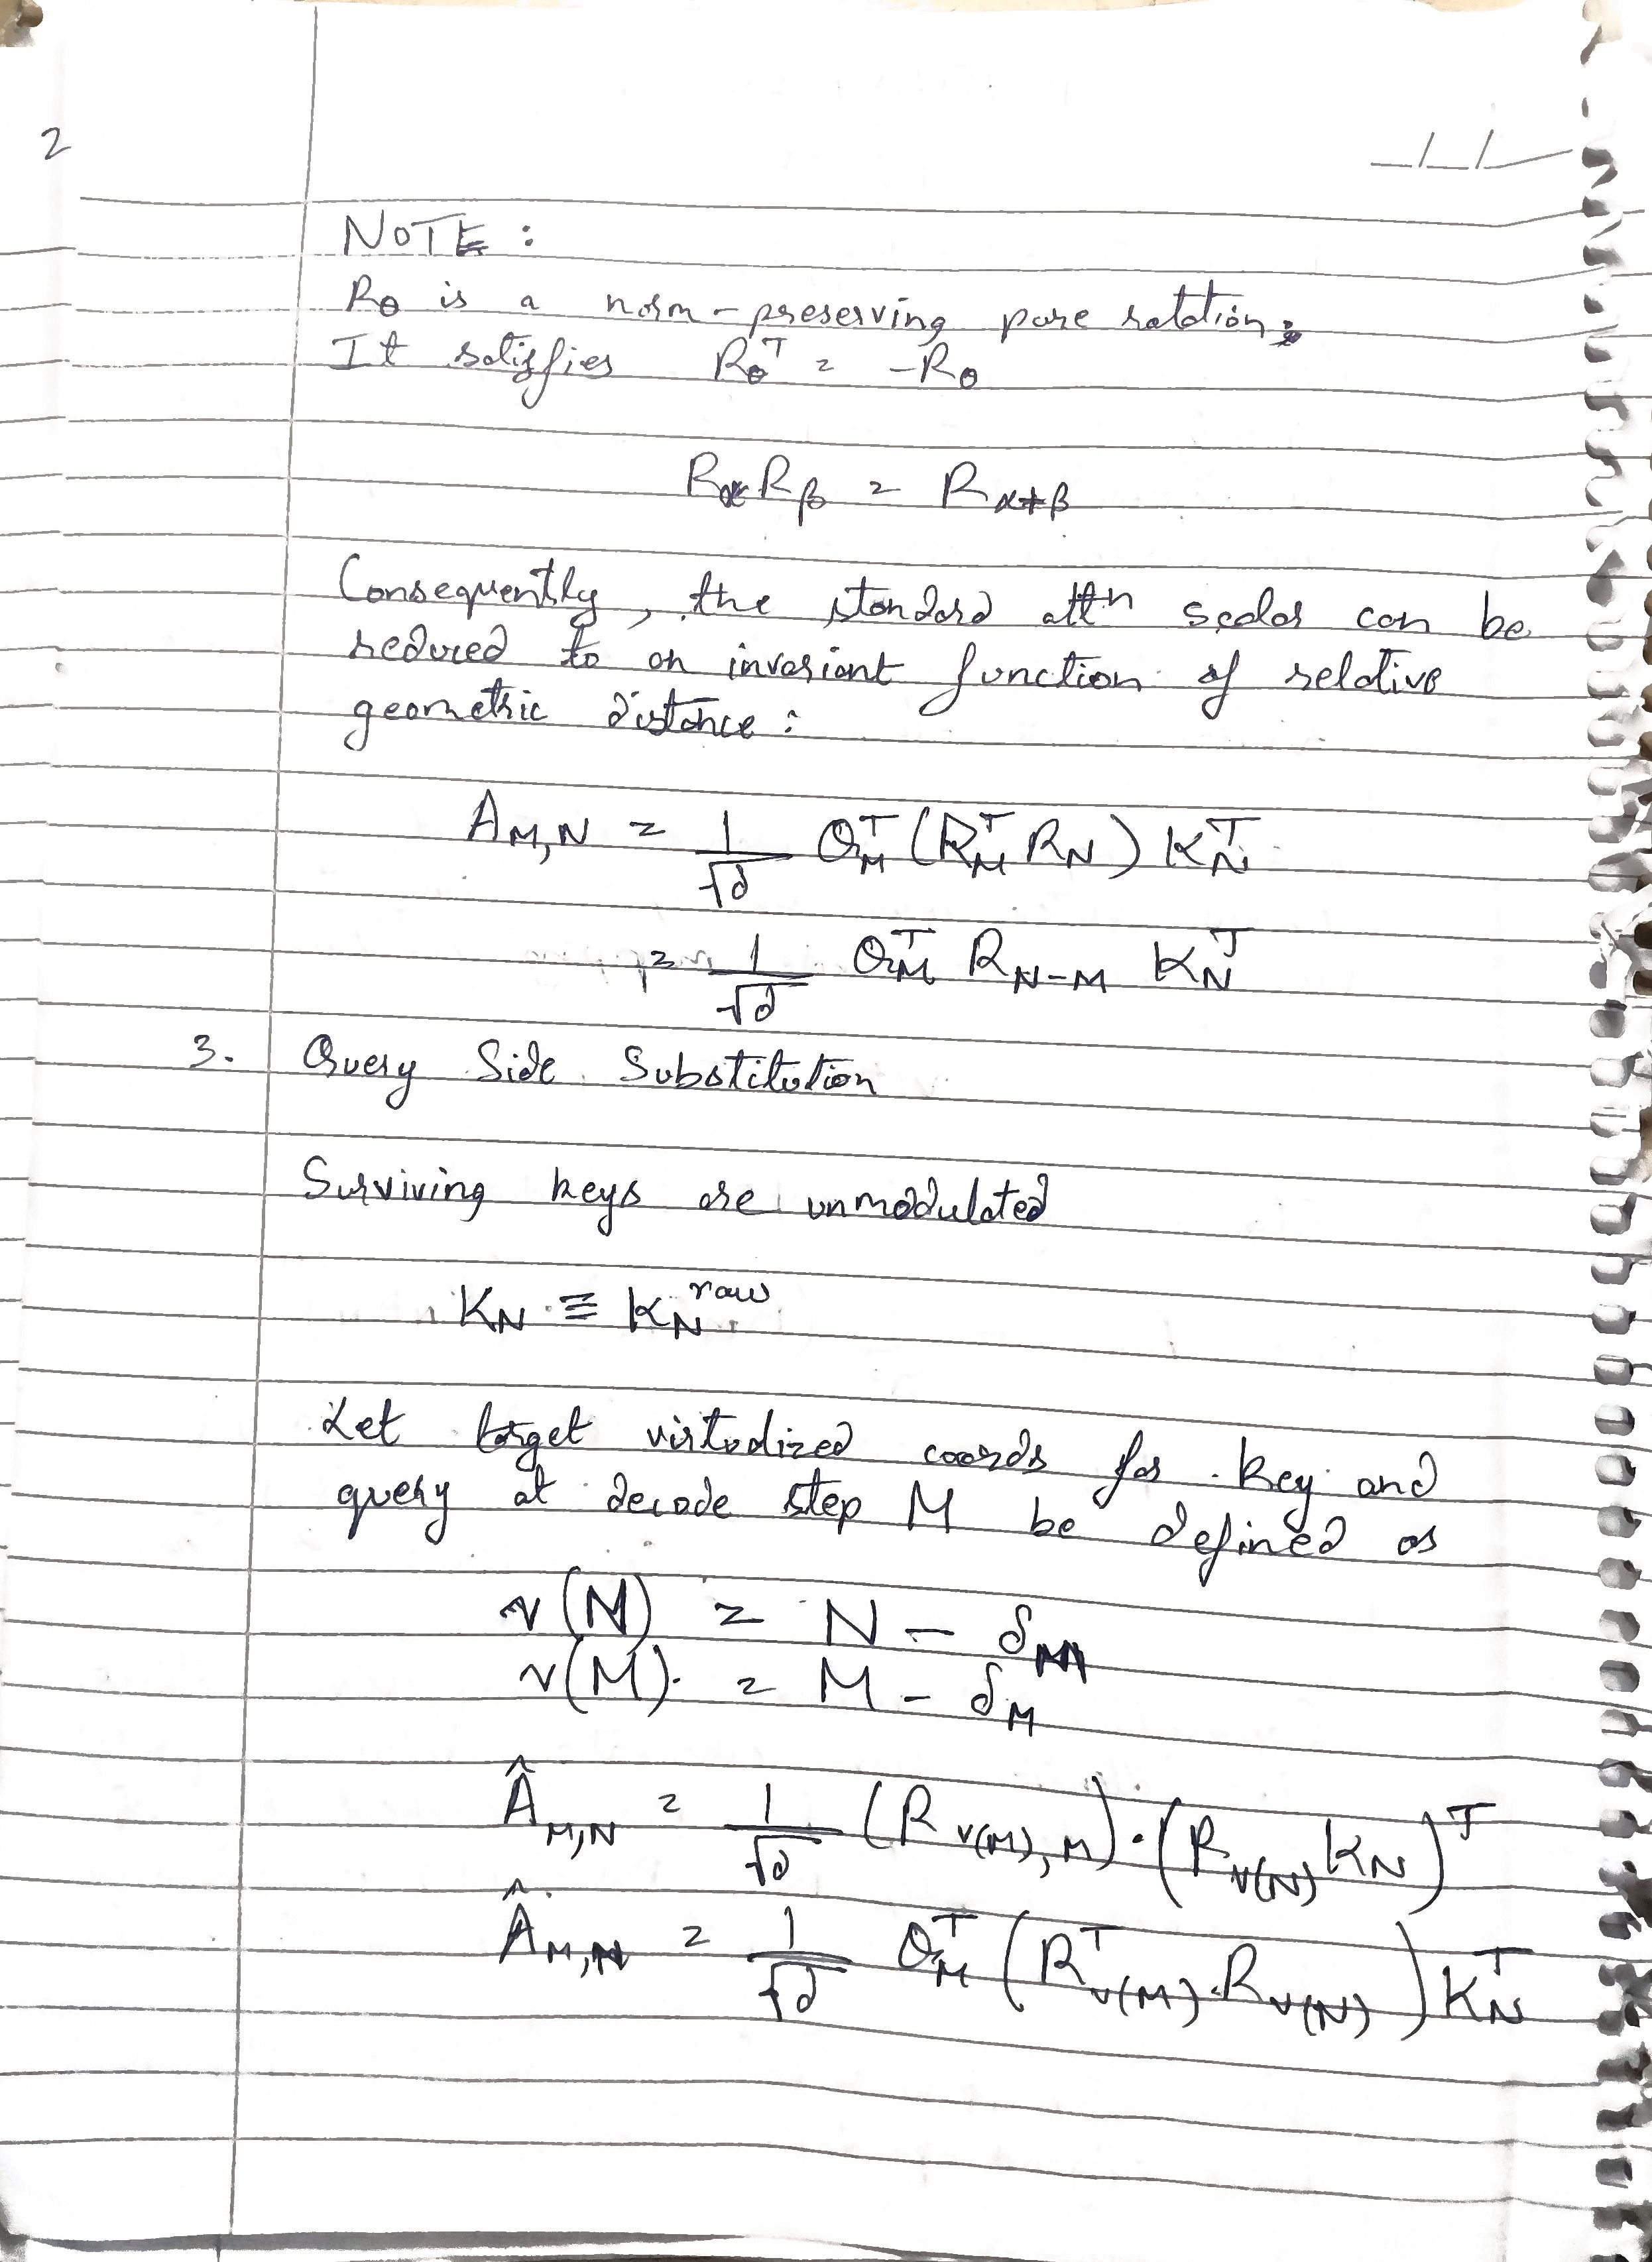 2
NOTE :
R_θ is a norm-preserving pure rotation.
It satisfies R_θ^T = -R_θ
R_α R_β = R_α+β
Consequently, the standard attn scalar can be
reduced to an invariant function of relative
geometric distance :
A_M,N = 1/√d Q_M^T (R_M^T R_N) K_N^T
= 1/√d Q_M^T R_N-M K_N^T
3. Query Side Substitution
Surviving keys are unmodulated
K_N ≡ K_N^raw
Let target virtualized coords for key and
query at decode step M be defined as
v(N) = N - δ_M
v(M) = M - δ_M
Â_M,N = 1/√d (R_v(M), M) · (R_v(N) K_N)^T
Â_M,N = 1/√d Q_M^T (R^T_v(M) · R_v(N)) K_N^T